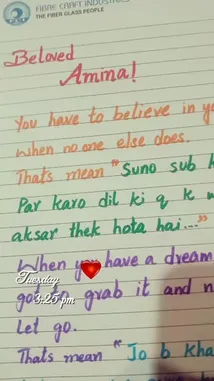 FIBRE CRAFT INDUSTRIES
THE FIBER GLASS PEOPLE
Beloved
Amina!
You have to believe in
when no one else does.
Thats mean "Suno sub
Par karo dil ki q k
aksar thek hota hai..."
When you have a dream
Tuesday
got to grab it and
3:25 pm
Let go.
Thats mean "Jo b